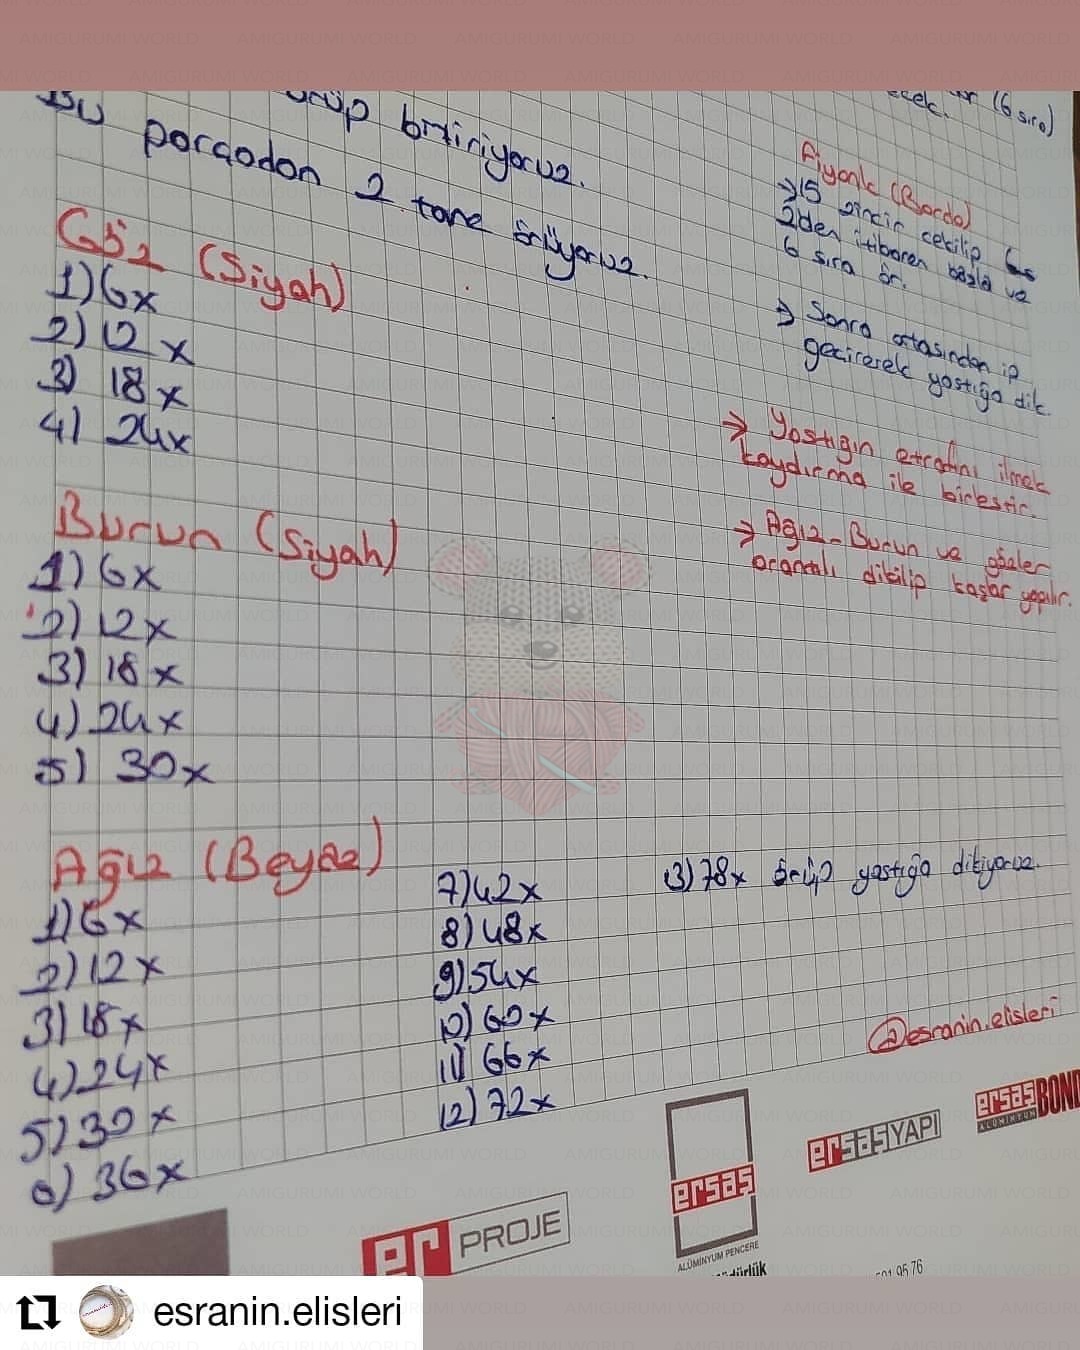 Bu
örüp bitiriyoruz.
parçadan 2 tane örüyoruz.
Göz (Siyah)
1) 6x
2) 12x
3) 18x
4) 24x
Burun (Siyah)
1) 6x
2) 12x
3) 18x
4) 24x
5) 30x
Ağız (Beyaz)
1) 6x
2) 12x
3) 18x
4) 24x
5) 30x
6) 36x
7) 42x
8) 48x
9) 54x
10) 60x
11) 66x
12) 72x
13) 78x örüp yastığa dikiyoruz.
(6 sıra)
Fiyonk (Bordo)
→ 15 zincir çekilip
2'den itibaren başla ve
6 sıra ör.
→ Sonra ortasından ip
geçirerek yastığa dik.
→ Yastığın etrafını ilmek
kaydırma ile birleştir.
→ Ağız-Burun ve gözler
orantılı dikilip kaşlar yapılır.
@esranin.elisleri
er PROJE
ersaş
ALÜMİNYUM PENCERE
ersaş YAPI
ersaş BOND
ALÜMİNYUM
95 76
esranin.elisleri
AMIGURUMI WORLD